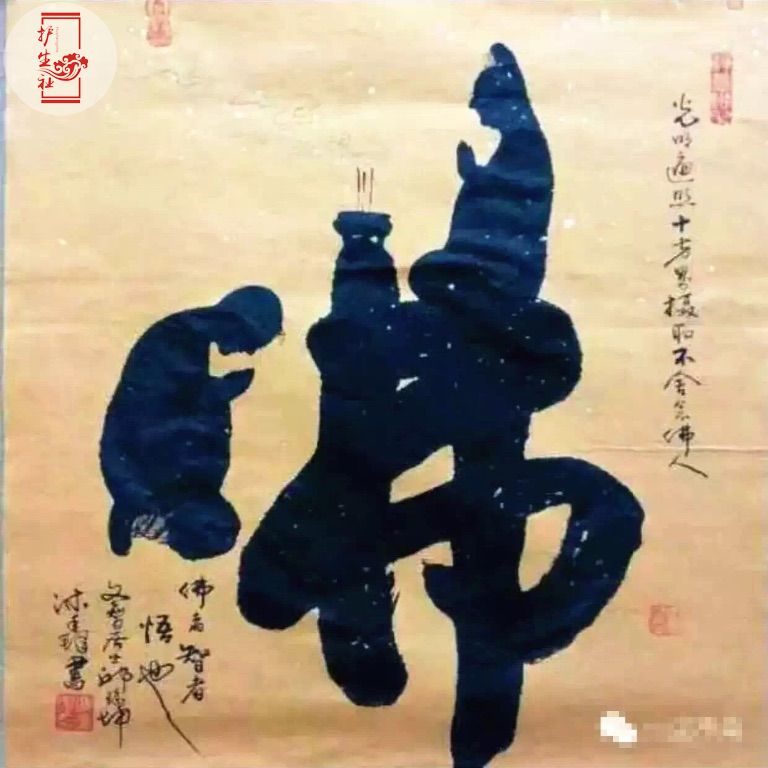 护生社
佛
光明遍照十方界摄取不舍念佛人
佛者智者
悟也
文智居士邱
书